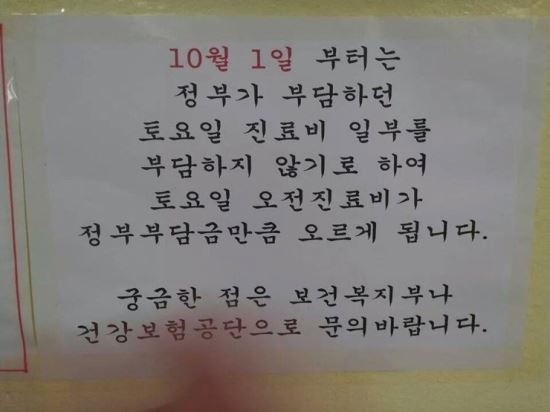 10월 1일 부터는
정부가 부담하던
토요일 진료비 일부를
부담하지 않기로 하여
토요일 오전진료비가
정부부담금만큼 오르게 됩니다.
궁금한 점은 보건복지부나
건강보험공단으로 문의바랍니다.